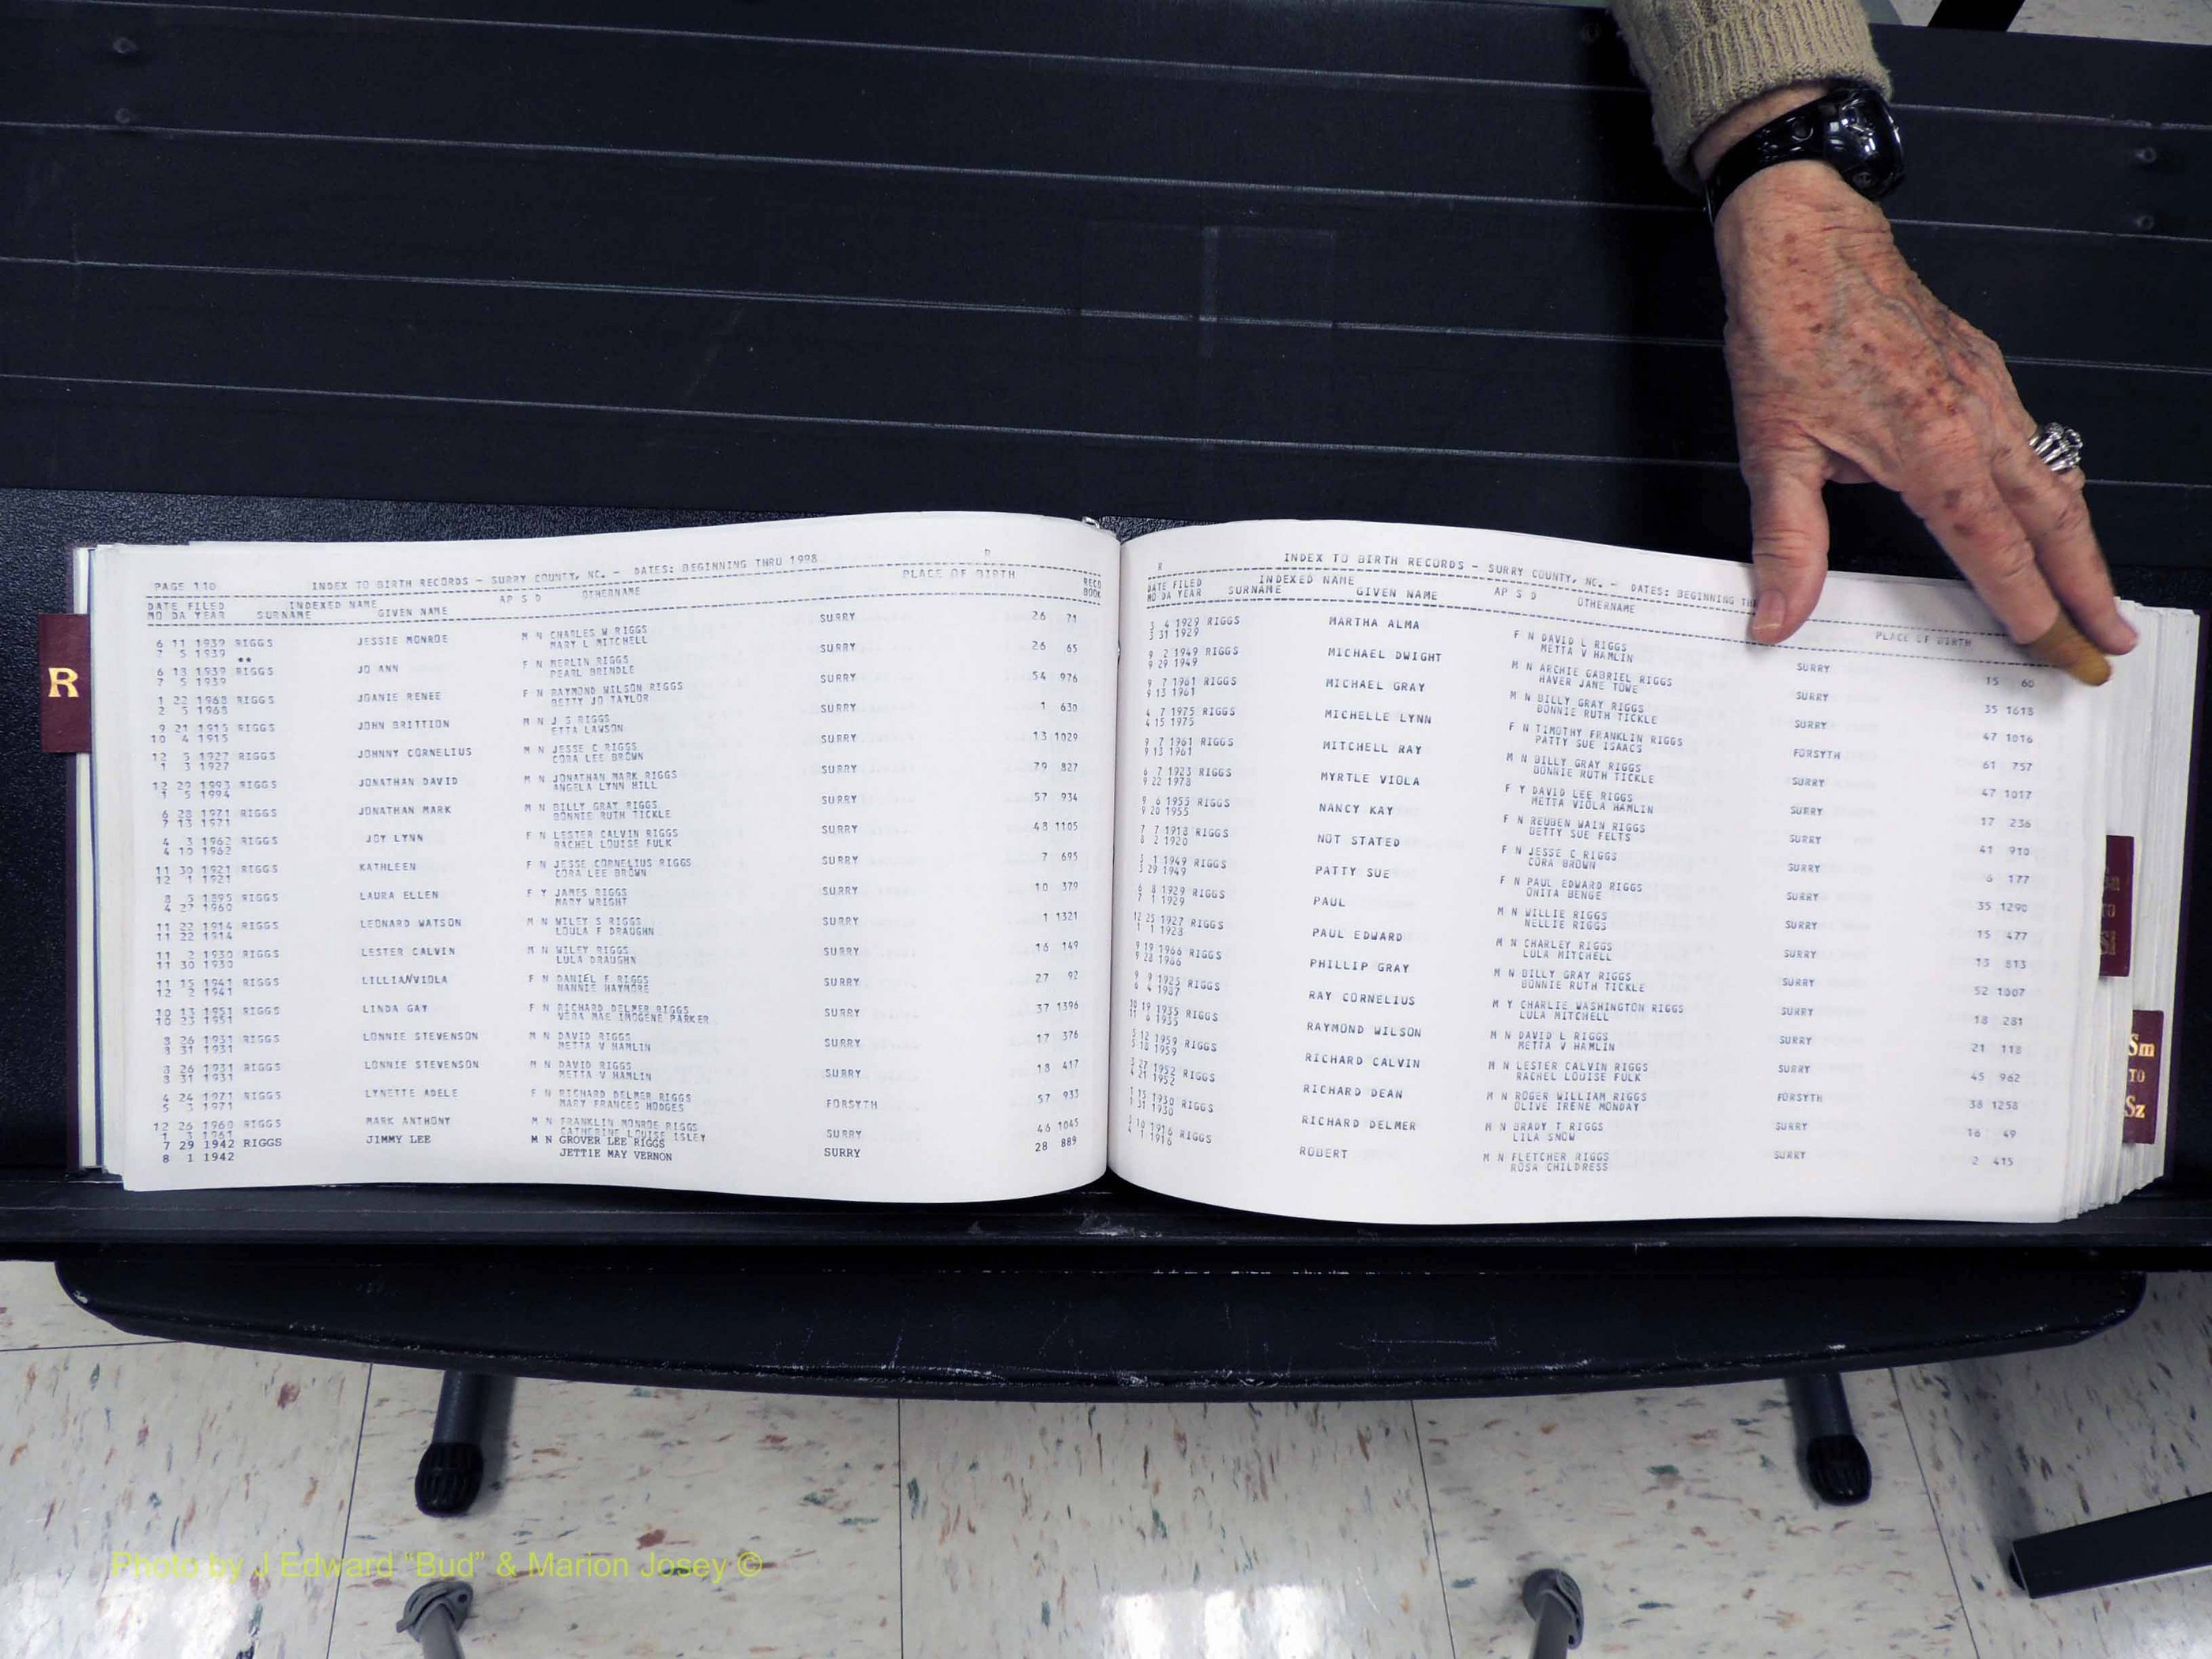 R
PAGE 110 INDEX TO BIRTH RECORDS - SURRY COUNTY, NC. - DATES: BEGINNING THRU 1998 R
DATE FILED INDEXED NAME AP S D OTHERNAME PLACE OF BIRTH RECO
MO DA YEAR SURNAME GIVEN NAME BOOK
6 11 1939 RIGGS JESSIE MONROE M N CHARLES W RIGGS SURRY 26 71
7 5 1939 MARY L MITCHELL
**
6 13 1939 RIGGS JO ANN F N MERLIN RIGGS SURRY 26 65
7 5 1939 PEARL BRINDLE
1 22 1968 RIGGS JOANIE RENEE F N RAYMOND WILSON RIGGS SURRY 54 976
2 5 1968 BETTY JO TAYLOR
9 21 1915 RIGGS JOHN BRITTION M N J S RIGGS SURRY 1 630
10 4 1915 ETTA LAWSON
12 5 1927 RIGGS JOHNNY CORNELIUS M N JESSE C RIGGS SURRY 13 1029
1 3 1927 CORA LEE BROWN
12 29 1993 RIGGS JONATHAN DAVID M N JONATHAN MARK RIGGS SURRY 79 827
1 5 1994 ANGELA LYNN HILL
6 28 1971 RIGGS JONATHAN MARK M N BILLY GRAY RIGGS SURRY 57 934
7 13 1971 BONNIE RUTH TICKLE
4 3 1962 RIGGS JOY LYNN F N LESTER CALVIN RIGGS SURRY 48 1105
4 10 1962 RACHEL LOUISE FULK
11 30 1921 RIGGS KATHLEEN F N JESSE CORNELIUS RIGGS SURRY 7 695
12 1 1921 CORA LEE BROWN
8 5 1895 RIGGS LAURA ELLEN F Y JAMES RIGGS SURRY 10 379
4 27 1960 MARY WRIGHT
11 22 1914 RIGGS LEONARD WATSON M N WILEY S RIGGS SURRY 1 1321
11 22 1914 LOULA F DRAUGHN
11 2 1930 RIGGS LESTER CALVIN M N WILEY RIGGS SURRY 16 149
11 30 1930 LULA DRAUGHN
11 15 1941 RIGGS LILLIAN/VIOLA F N DANIEL F RIGGS SURRY 27 92
12 2 1941 NANNIE HAYMORE
10 13 1951 RIGGS LINDA GAY F N RICHARD DELMER RIGGS SURRY 37 1396
10 23 1951 VERA MAE IMOGENE PARKER
8 26 1931 RIGGS LONNIE STEVENSON M N DAVID RIGGS SURRY 17 376
8 31 1931 METTA V HAMLIN
8 26 1931 RIGGS LONNIE STEVENSON M N DAVID RIGGS SURRY 18 417
8 31 1931 METTA V HAMLIN
4 24 1971 RIGGS LYNETTE ADELE F N RICHARD DELMER RIGGS FORSYTH 57 933
5 3 1971 MARY FRANCES HODGES
12 26 1960 RIGGS MARK ANTHONY M N FRANKLIN MONROE RIGGS SURRY 46 1045
1 3 1961 CATHERINE LOUISE ISLEY
7 29 1942 RIGGS JIMMY LEE M N GROVER LEE RIGGS SURRY 28 889
8 1 1942 JETTIE MAY VERNON
R INDEX TO BIRTH RECORDS - SURRY COUNTY, NC. - DATES: BEGINNING
DATE FILED INDEXED NAME AP S D OTHERNAME PLACE OF BIRTH
MO DA YEAR SURNAME GIVEN NAME
3 4 1929 RIGGS MARTHA ALMA F N DAVID L RIGGS SURRY 15 60
3 31 1929 METTA V HAMLIN
9 2 1949 RIGGS MICHAEL DWIGHT M N ARCHIE GABRIEL RIGGS SURRY 35 1618
9 29 1949 HAVER JANE TOWE
9 7 1961 RIGGS MICHAEL GRAY M N BILLY GRAY RIGGS SURRY 47 1016
9 13 1961 BONNIE RUTH TICKLE
4 7 1975 RIGGS MICHELLE LYNN F N TIMOTHY FRANKLIN RIGGS FORSYTH 61 757
4 15 1975 PATTY SUE ISAACS
9 7 1961 RIGGS MITCHELL RAY M N BILLY GRAY RIGGS SURRY 47 1017
9 13 1961 BONNIE RUTH TICKLE
6 7 1923 RIGGS MYRTLE VIOLA F Y DAVID LEE RIGGS SURRY 17 236
9 22 1978 METTA VIOLA HAMLIN
9 6 1955 RIGGS NANCY KAY F N REUBEN WAIN RIGGS SURRY 41 910
9 20 1955 BETTY SUE FELTS
7 7 1918 RIGGS NOT STATED F N JESSE C RIGGS SURRY 6 177
8 2 1920 CORA BROWN
3 1 1949 RIGGS PATTY SUE F N PAUL EDWARD RIGGS SURRY 35 1290
3 29 1949 ONITA BENGE
6 8 1929 RIGGS PAUL M N WILLIE RIGGS SURRY 15 477
7 1 1929 NELLIE RIGGS
12 25 1927 RIGGS PAUL EDWARD M N CHARLEY RIGGS SURRY 13 813
1 1 1928 LULA MITCHELL
9 19 1966 RIGGS PHILLIP GRAY M N BILLY GRAY RIGGS SURRY 52 1007
9 28 1966 BONNIE RUTH TICKLE
9 9 1925 RIGGS RAY CORNELIUS M Y CHARLIE WASHINGTON RIGGS SURRY 18 281
6 4 1987 LULA MITCHELL
10 19 1935 RIGGS RAYMOND WILSON M N DAVID L RIGGS SURRY 21 118
11 6 1935 METTA V HAMLIN
5 12 1959 RIGGS RICHARD CALVIN M N LESTER CALVIN RIGGS SURRY 45 962
5 18 1959 RACHEL LOUISE FULK
3 27 1952 RIGGS RICHARD DEAN M N ROGER WILLIAM RIGGS FORSYTH 38 1258
4 21 1952 OLIVE IRENE MONDAY
1 15 1930 RIGGS RICHARD DELMER M N BRADY T RIGGS SURRY 16 49
1 31 1930 LILA SNOW
3 10 1916 RIGGS ROBERT M N FLETCHER RIGGS SURRY 2 415
4 1 1916 ROSA CHILDRESS
Si
Sm
TO
Sz
Photo by J Edward “Bud” & Marion Josey ©